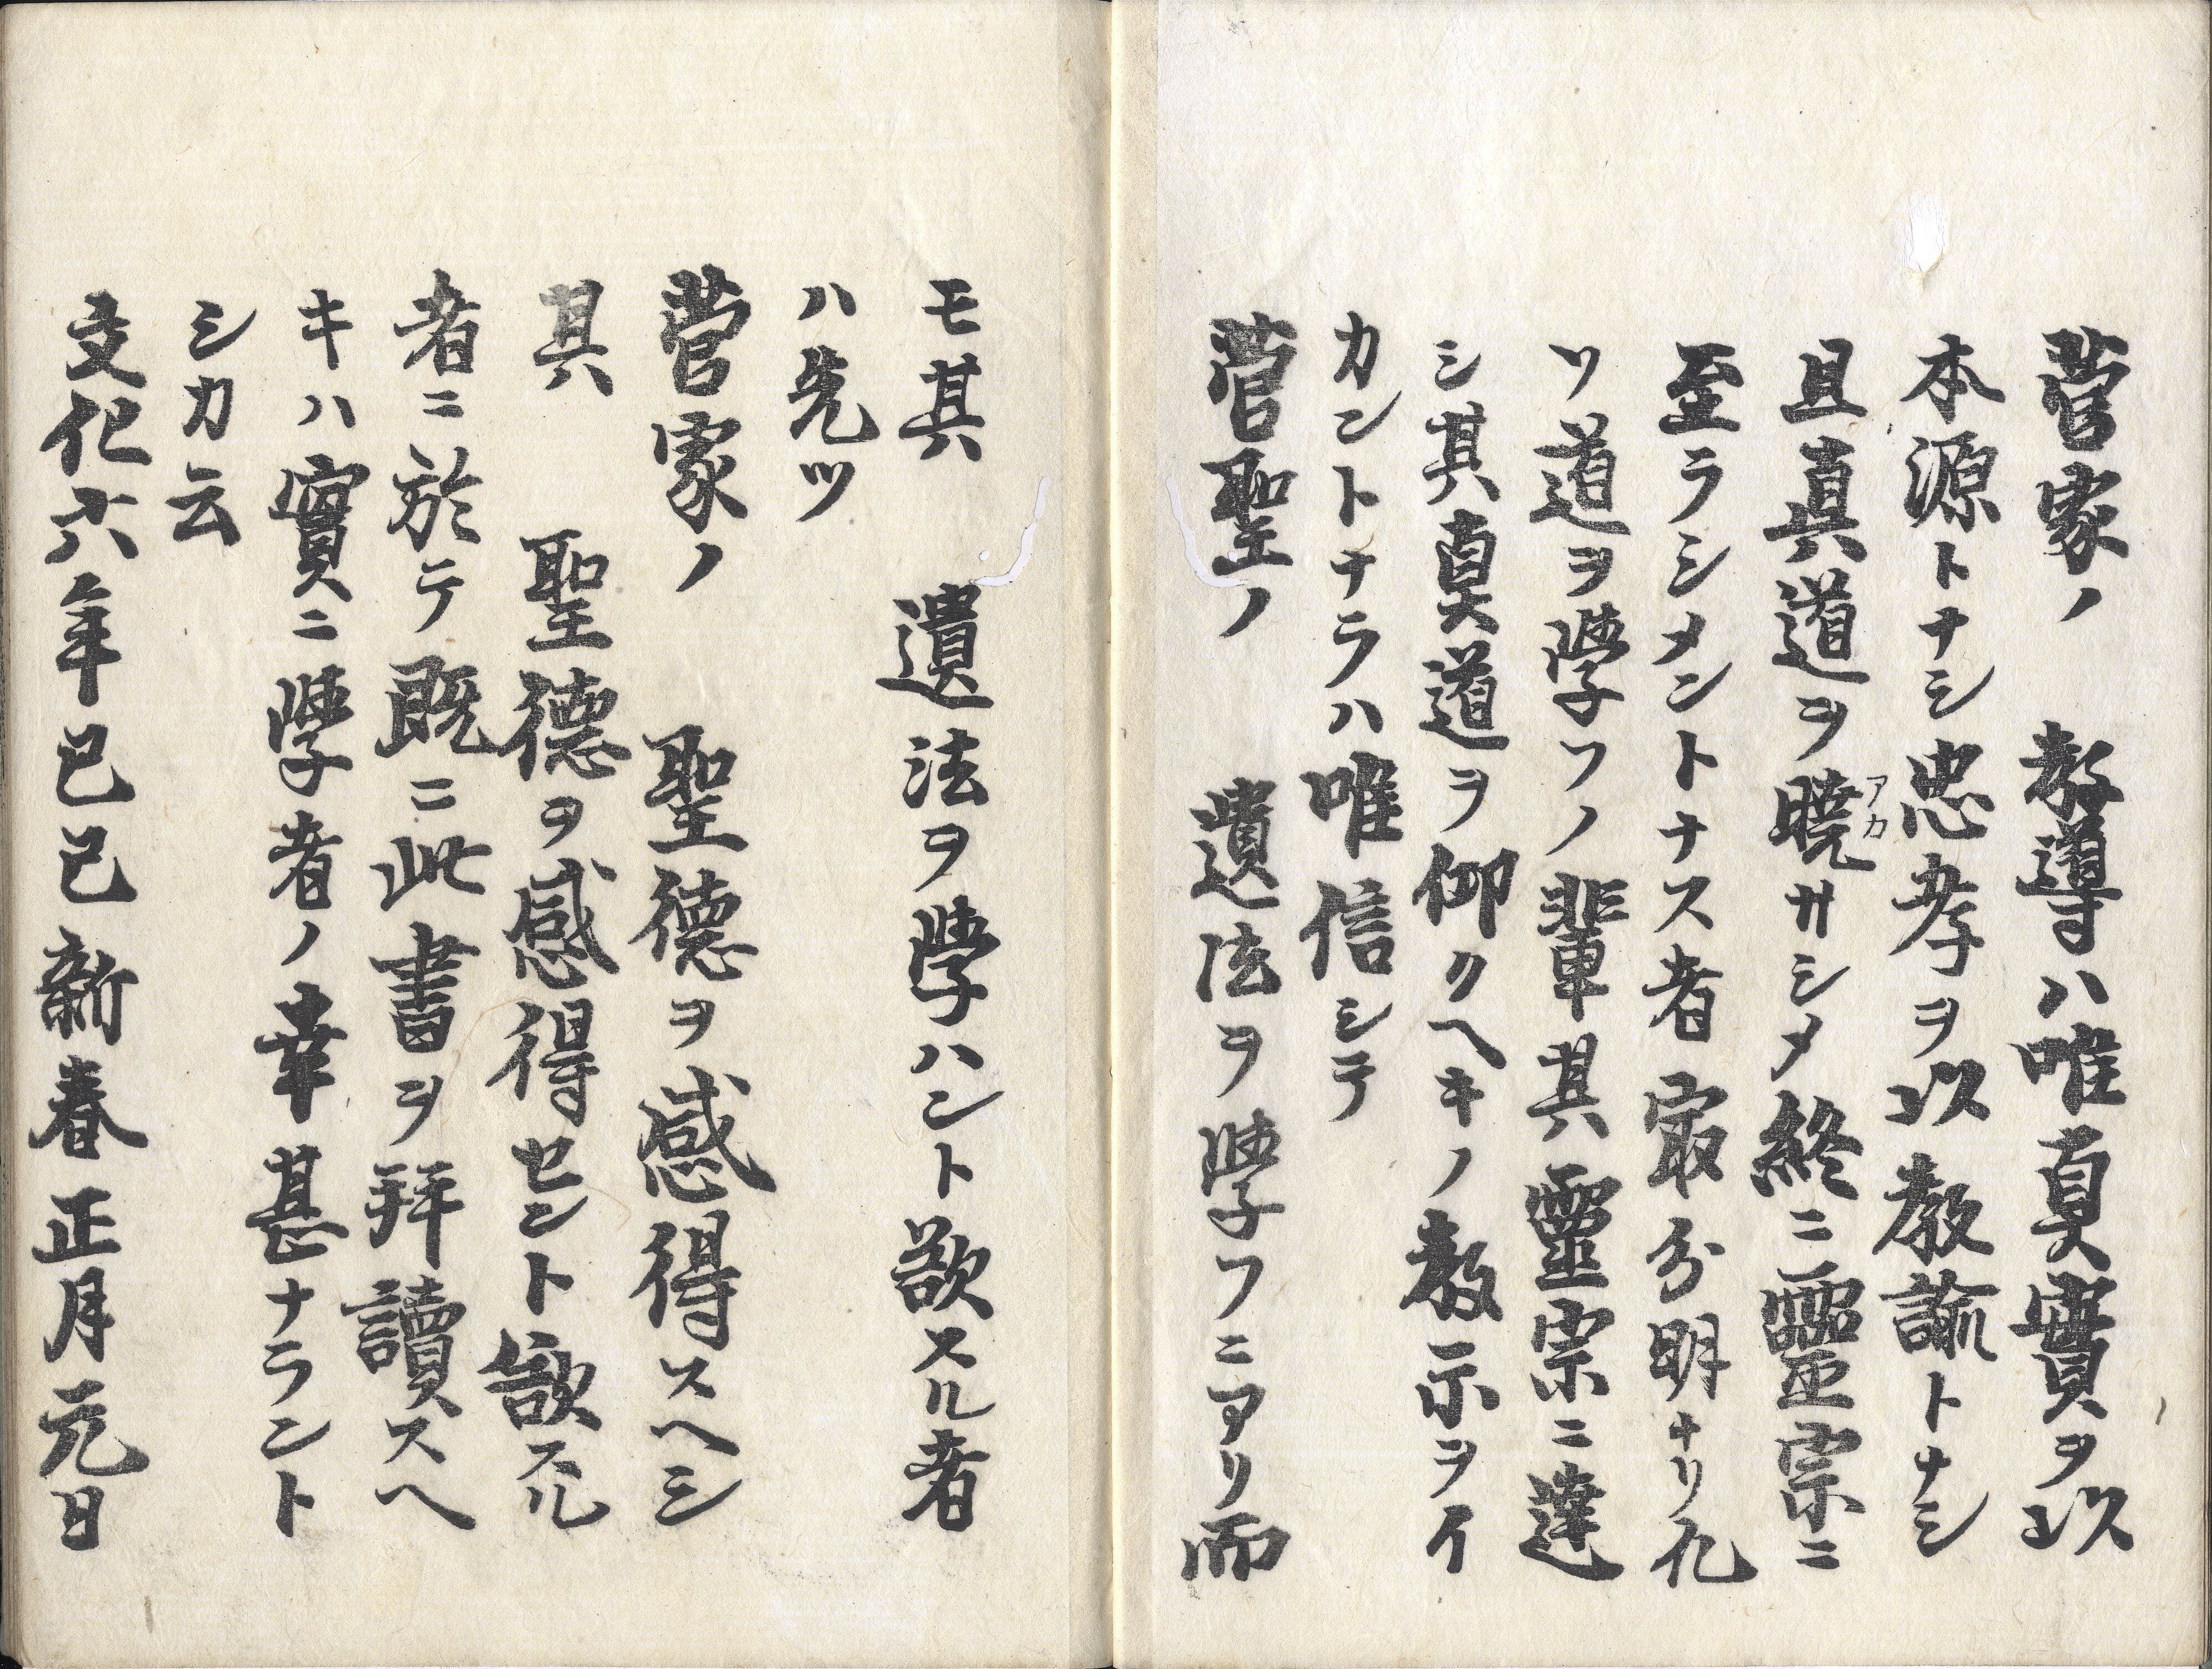 菅家ノ　教導ハ唯真實ヲ以
本源トナシ忠孝ヲ以教諭トナシ
且真道ヲ曉サシメ終ニ靈宗ニ
アカ
至ラシメントナス者㝡分明ナリ凡
ソ道ヲ學フノ輩其靈宗ニ達
シ其真道ヲ仰クヘキノ教示ヲイ
カントナラハ唯信シテ
菅聖ノ　遺法ヲ學フニアリ而
モ其　遺法ヲ學ハント欲スル者
ハ先ツ
菅家ノ　聖德ヲ感得スヘシ
其　聖德ヲ感得セント欲スル
者ニ於テ既ニ此書ヲ拜讀スヘ
キハ實ニ學者ノ幸甚ナラント
シカ云
文化六年己巳新春正月元日